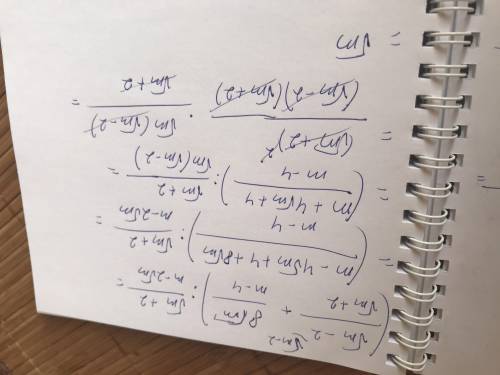 ((√m − 2)/(√m + 2) ^(√m−2) + 8√m/(m − 4)) : (√m + 2)/(m − 2√m) =
= ((m − 4√m + 4 + 8√m)/(m − 4)) : (√m + 2)/(m − 2√m) =
= ((m + 4√m + 4)/(m − 4)) : (√m + 2)/(√m(√m − 2)) =
= (√m + 2)²/((√m − 2)(√m + 2)) · √m(√m − 2)/(√m + 2) =
= √m